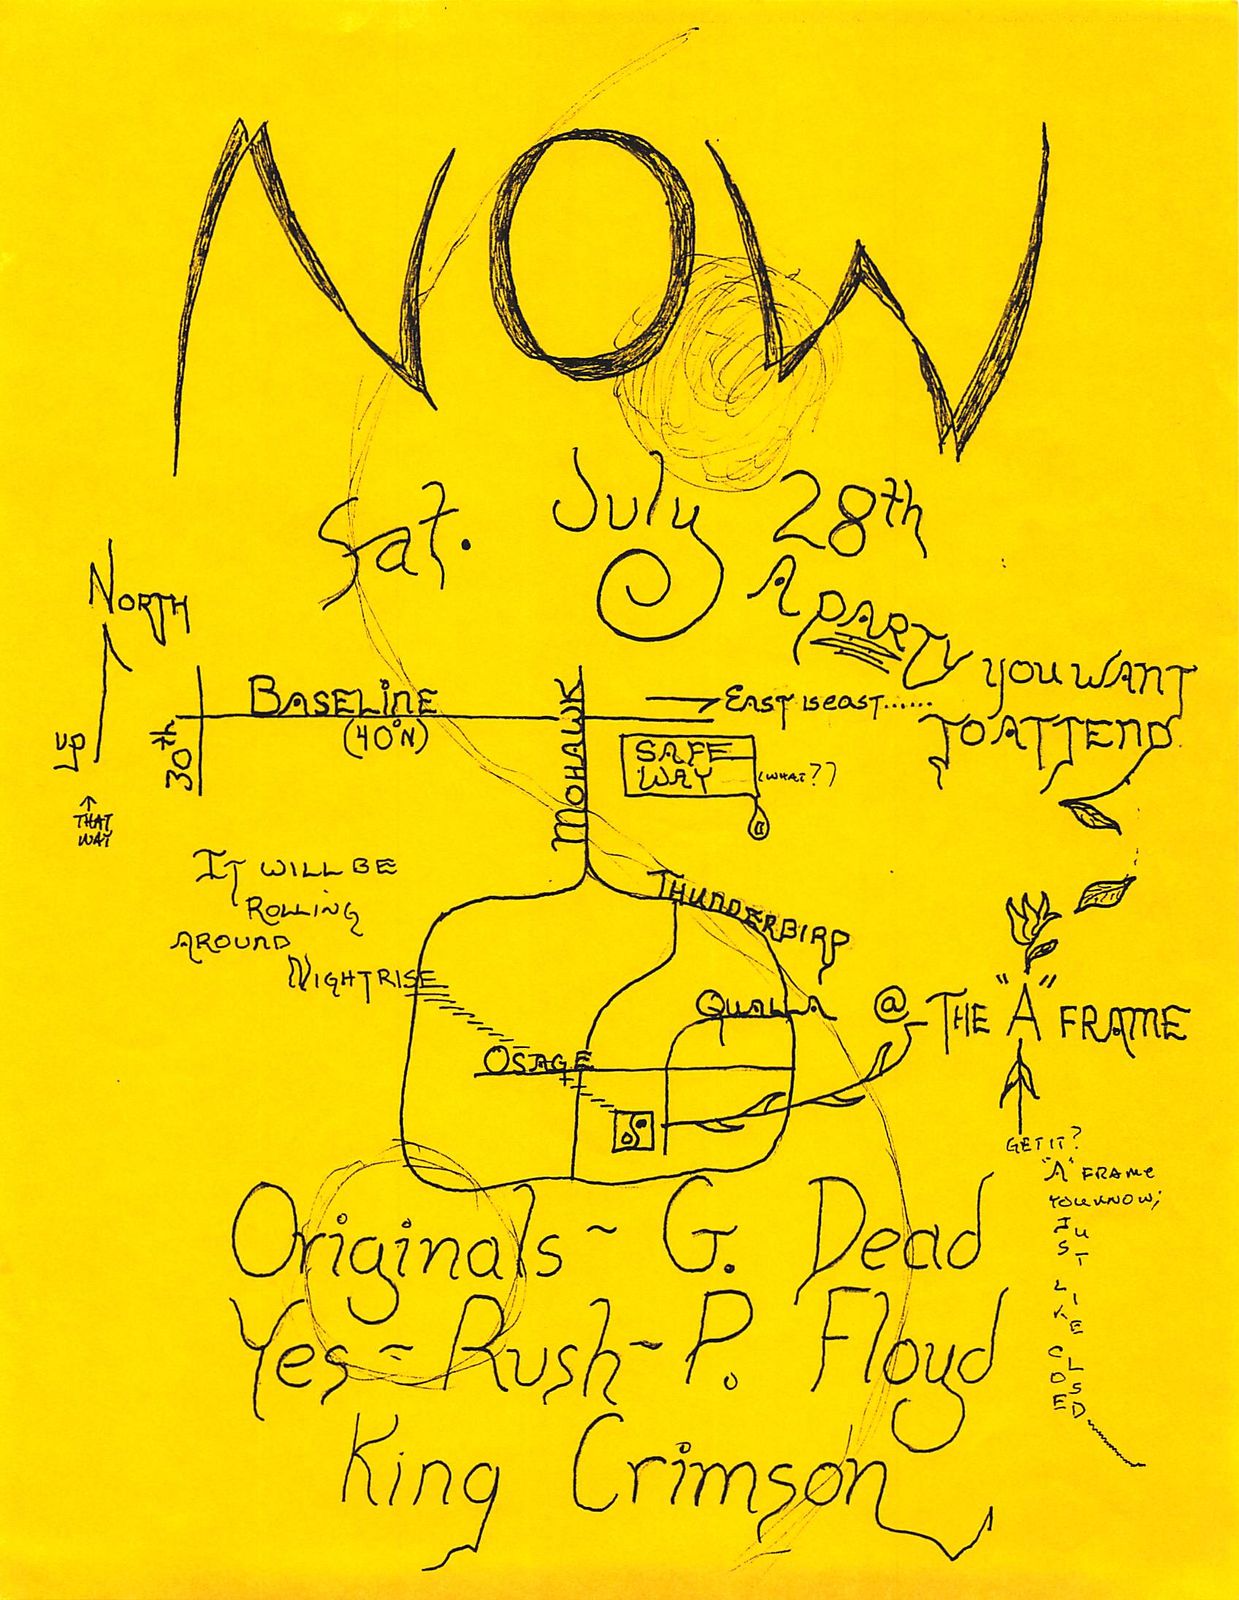 NOW
Sat. July 28th
A PARTY YOU WANT
TO ATTEND.
NORTH
UP
↑
THAT
WAY
30th
BASELINE
(40°N)
MOHAWK
EAST IS EAST......
SAFE
WAY
(WHAT??)
IT WILL BE
ROLLING
AROUND
NIGHTRISE
THUNDERBIRD
QUALLA
OSAGE
@ THE "A" FRAME
GET IT?
"A" FRAME
YOU KNOW;
JUST
LIKE
CLOSED
Originals ~ G. Dead
Yes ~ Rush ~ P. Floyd
King Crimson